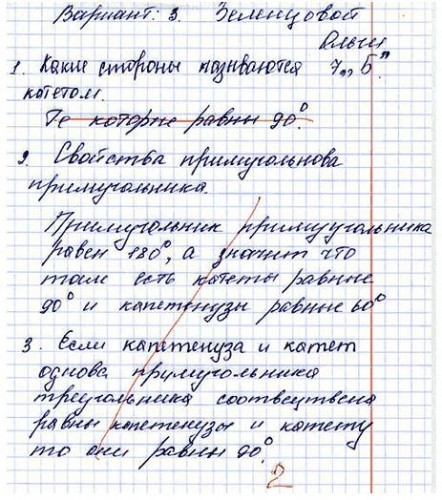 Вариант: 3. Зеленцовой
Ольги
1. Какие стороны называются 7„Б”
катетом.
Те которые равны 90°.
2. Свойства примугольнова
примугольника.
Примугольник примуугольника
равен 180°, а значит что
там есть катеты равные
90° и капетенузы равные 60°
3. Если капетенуза и катет
однова примугольника
треугольника соотвецтвена
равны капетенузы и катету
то они равны 90°.
2